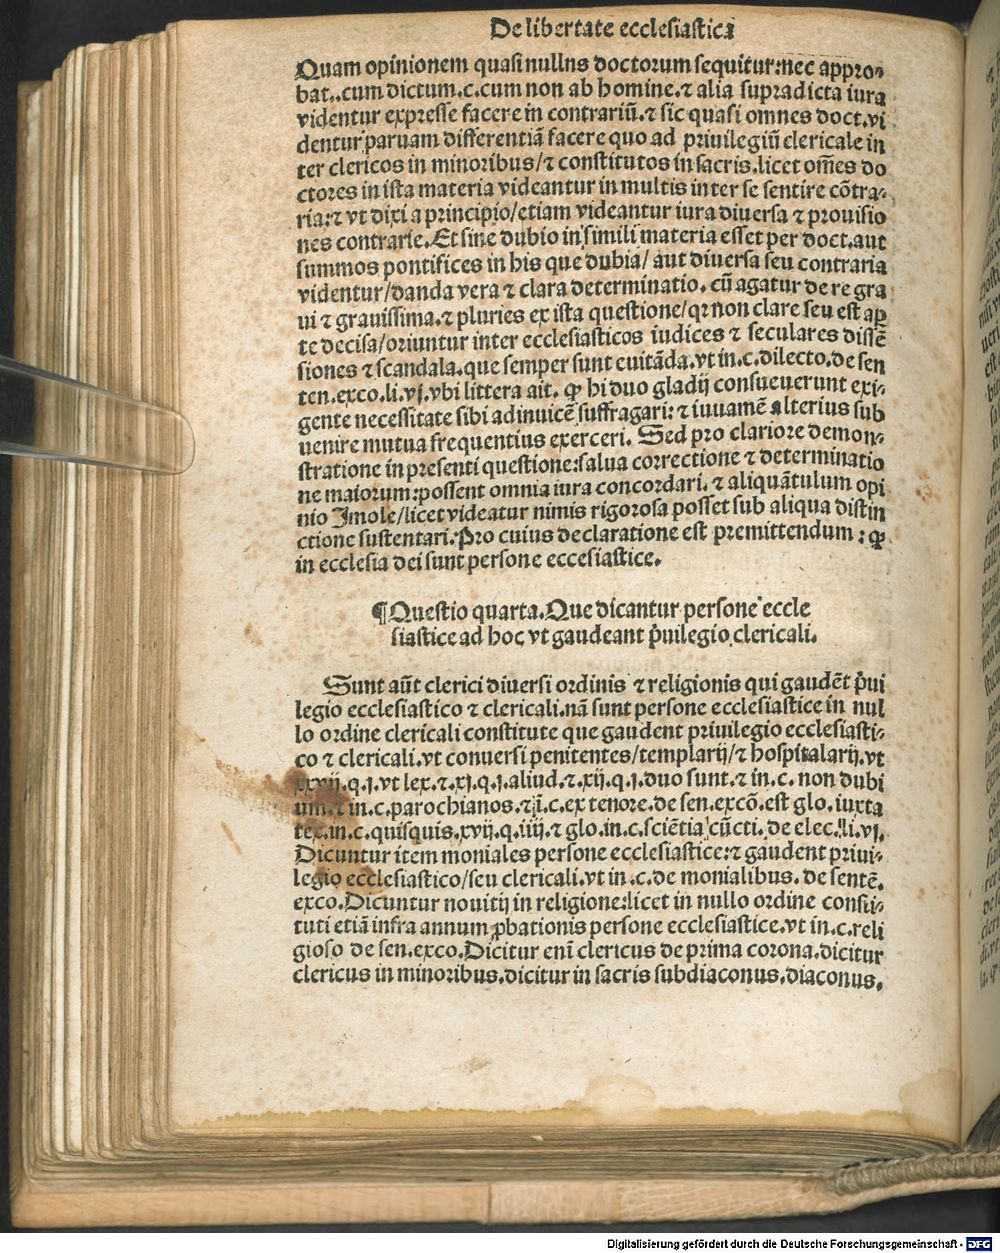 De libertate ecclesiastica
Quam opinionem quasi nullns doctorum sequitur:nec appro-
bat,.cum dictum.c.cum non ab homine.⁊ alia supradicta iura
videntur expresse facere in contrariū.⁊ sic quasi omnes doct.vi
dentur paruam differentiā facere quo ad priuilegiū clericale in
ter clericos in minoribus/⁊ constitutos in sacris.licet om̄es do
ctores in ista materia videantur in multis inter se sentire cōtra-
ria:⁊ vt dixi a principio/etiam videantur iura diuersa ⁊ prouisio
nes contrarie.Et sine dubio in simili materia esset per doct.aut
summos pontifices in his que dubia/ aut diuersa seu contraria
videntur/danda vera ⁊ clara determinatio. cū agatur de re gra
ui ⁊ grauissima.⁊ pluries ex ista questione/qꝛ non clare seu est aꝑ
te decisa/oriuntur inter ecclesiasticos iudices ⁊ seculares dissē
siones ⁊ scandala.que semper sunt euitāda.vt in.c.dilecto.de sen
ten.exco.li.vj.vbi littera ait. ꝙ hi duo gladij consueuerunt exi-
gente necessitate sibi adinuicē suffragari:⁊ iuuamē alterius sub
uenire mutua frequentius exerceri. Sed pro clariore demon-
stratione in presenti questione:salua correctione ⁊ determinatio
ne maiorum:possent omnia iura concordari. ⁊ aliquātulum opi
nio Imole/licet videatur nimis rigorosa posset sub aliqua distin
ctione sustentari.Pro cuius declaratione est premittendum : ꝙ
in ecclesia dei sunt persone eccesiastice.
¶Questio quarta.Que dicantur persone eccle
siastice ad hoc vt gaudeant p̄uilegio clericali.
Sunt aūt clerici diuersi ordinis ⁊ religionis qui gaudēt p̄ui
legio ecclesiastico ⁊ clericali.nā sunt persone ecclesiastice in nul
lo ordine clericali constitute que gaudent priuilegio ecclesiasti-
co ⁊ clericali.vt conuersi penitentes/templarij/⁊ hospitalarij.vt
xxvij.q.j.vt lex.⁊.xj.q.j.aliud.⁊.xij.q.j.duo sunt.⁊ in.c. non dubi
um.⁊ in.c.parochianos.⁊ ī.c.ex tenore.de sen.excō.est glo. iuxta
tex.in.c.quisquis.xvij.q.iiij.⁊ glo.in.c.sciētia cūcti. de elec.li.vj.
Dicuntur item moniales persone ecclesiastice:⁊ gaudent priui-
legio ecclesiastico/seu clericali.vt in .c.de monialibus. de sentē.
exco.Dicuntur nouitij in religione:licet in nullo ordine consti-
tuti etiā infra annum ꝓbationis persone ecclesiastice.vt in.c.reli
gioso de sen.exco.Dicitur enī clericus de prima corona.dicitur
clericus in minoribus.dicitur in sacris subdiaconus.diaconus.
Digitalisierung gefördert durch die Deutsche Forschungsgemeinschaft - DFG